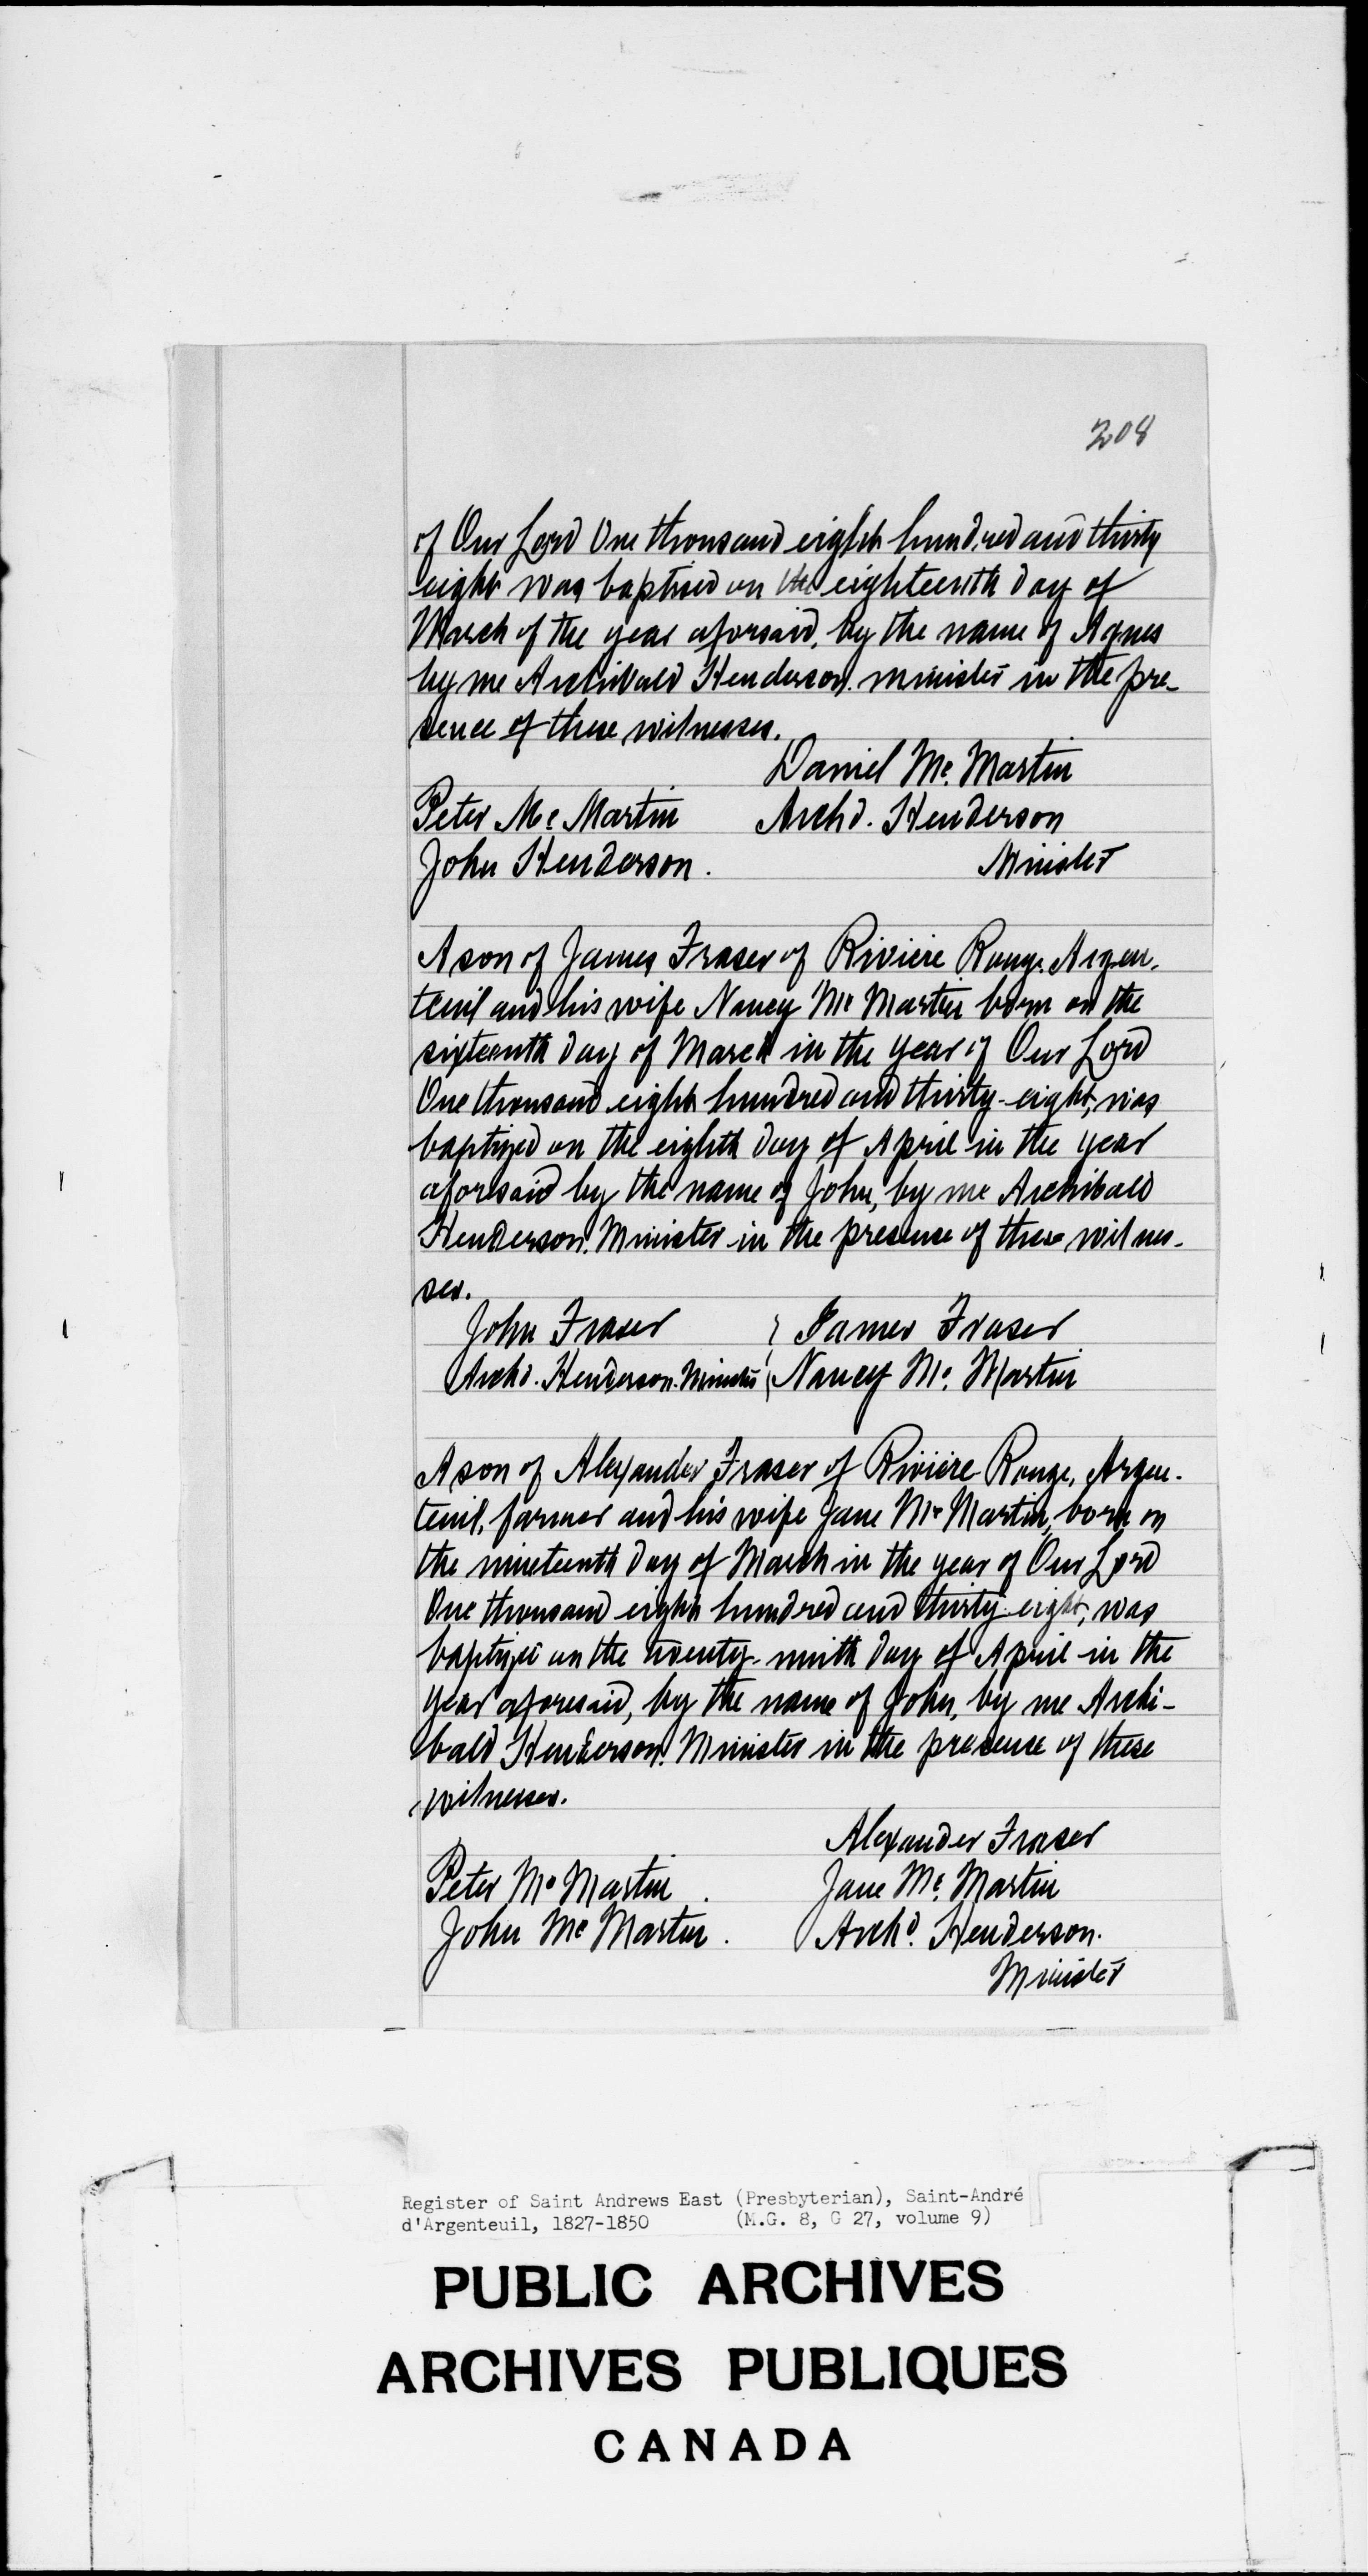 208
of Our Lord One thousand eight hundred and thirty
eight was baptised on the eighteenth day of
March of the year aforsaid, by the name of Agnes
by me Archibald Henderson. minister in the pre-
sence of these witnesses.
Daniel Mc. Martin
Peter Mc Martin Archd. Henderson
John Henderson. Minister
A son of James Fraser of Riviere Rouge Argen-
teuil and his wife Nancy Mc Martin born on the
sixteenth day of March in the year of Our Lord
One thousand eight hundred and thirty-eight, was
baptized on the eighth day of April in the year
aforesaid by the name of John, by me Archibald
Henderson. Minister in the presence of these witnes-
ses.
John Fraser } James Fraser
Archd. Henderson. Minister { Nancy Mc. Martin
A son of Alexander Fraser of Riviere Rouge, Argen-
teuil, farmer and his wife Jane Mc Martin, born on
the nineteenth day of March in the year of Our Lord
One thousand eight hundred and thirty-eight, was
baptized on the twenty-ninth day of April in the
year aforesaid, by the name of John, by me Archi-
bald Henderson. Minister in the presence of these
witnesses.
Alexander Fraser
Peter Mc Martin. Jane Mc. Martin
John Mc Martin. Archd. Henderson.
Minister
Register of Saint Andrews East (Presbyterian), Saint-André
d'Argenteuil, 1827-1850 (M.G. 8, G 27, volume 9)
PUBLIC ARCHIVES
ARCHIVES PUBLIQUES
CANADA